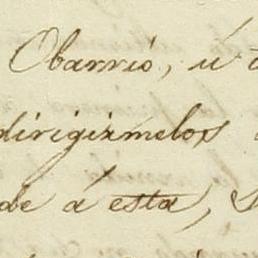 Obarrio, ú
dirigirmelos
de á esta, S